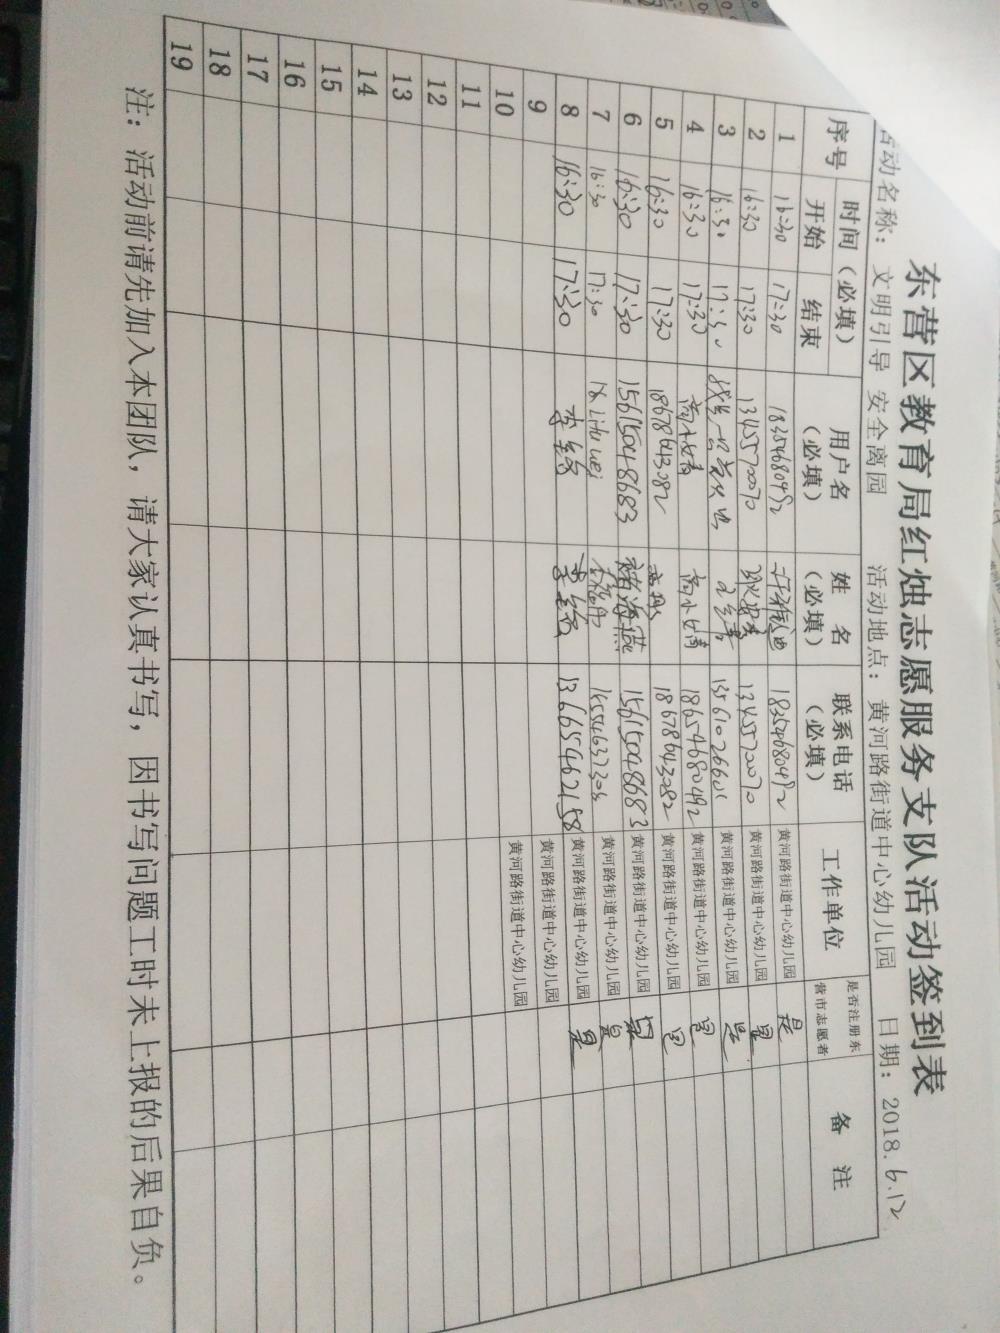 东营区教育局红烛志愿服务支队活动签到表
活动名称：文明引导 安全离园 活动地点：黄河路街道中心幼儿园 日期：2018.6.12
序号 时间（必填） 用户名（必填） 姓名（必填） 联系电话（必填） 工作单位 是否注册东营市志愿者 备注
开始 结束
1 16:30 17:30 18354680492 18354680492 黄河路街道中心幼儿园 是
2 16:30 17:30 13455720070 13455720070 黄河路街道中心幼儿园 是
3 16:30 17:30 黄河路街道中心幼儿园 是
4 16:30 17:30 高小青 高小青 18654680492 黄河路街道中心幼儿园 是
5 16:30 17:30 18678643082 18678643082 黄河路街道中心幼儿园 是
6 16:30 17:30 15615048683 褚海燕 15615048683 黄河路街道中心幼儿园 是
7 16:30 17:30 黄河路街道中心幼儿园 是
8 16:30 17:30 13665462158 黄河路街道中心幼儿园 是
9 黄河路街道中心幼儿园
10 黄河路街道中心幼儿园
11
12
13
14
15
16
17
18
19
注：活动前请先加入本团队，请大家认真书写，因书写问题工时未上报的后果自负。